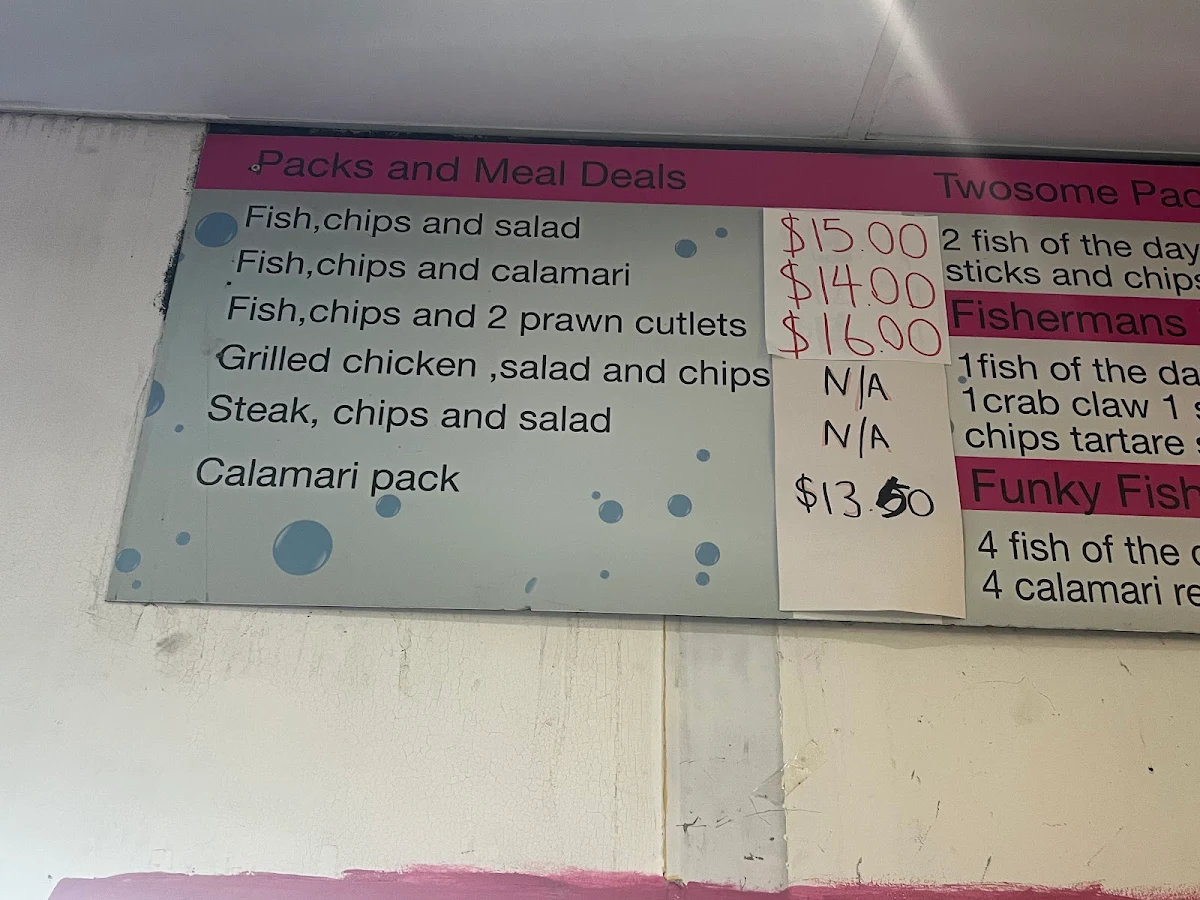 Packs and Meal Deals
Fish,chips and salad $15.00
Fish,chips and calamari $14.00
Fish,chips and 2 prawn cutlets $16.00
Grilled chicken ,salad and chips N/A
Steak, chips and salad N/A
Calamari pack $13.50
Twosome
2 fish of the day
sticks and chips
Fishermans
1fish of the
1crab claw 1
chips tartare
Funky
4 fish of the
4 calamari